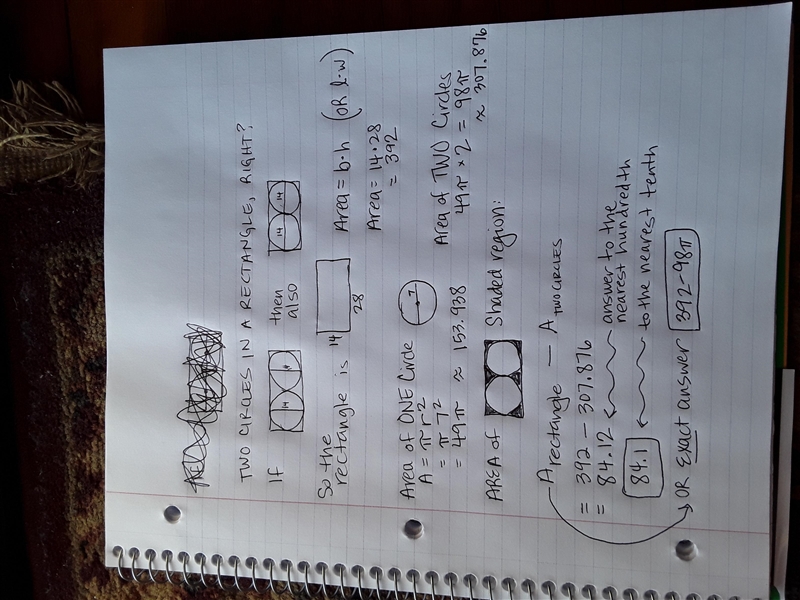 TWO CIRCLES IN A RECTANGLE, RIGHT?
If 14 14 then also 14 14
So the rectangle is 14 28
Area = b·h (OR l·w)
Area = 14·28
= 392
Area of ONE Circle 7
A = πr²
= π 7²
= 49π ≈ 153.938
Area of TWO Circles
49π × 2 = 98π
≈ 307.876
AREA OF Shaded region:
A rectangle — A TWO CIRCLES
= 392 — 307.876
= 84.12 answer to the nearest hundredth
84.1 to the nearest tenth
OR Exact answer 392-98π